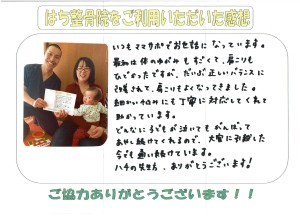 はち整骨院をご利用いただいた感想
いつもママサポでお世話になっています。
最初は体のゆがみもすごくて、肩こりも
ひどかったですが、だいぶ正しいバランスに
改善されて、肩こりもよくなってきました。
細かい悩みにも丁寧に対応してくれて
助かっています。
どんなにうちの子が泣いてもがんばって
あやし続けてくれるので、大変に引越した
今でも通い続けています。
ハチの先生方、ありがとうございます！
ご協力ありがとうございます！！